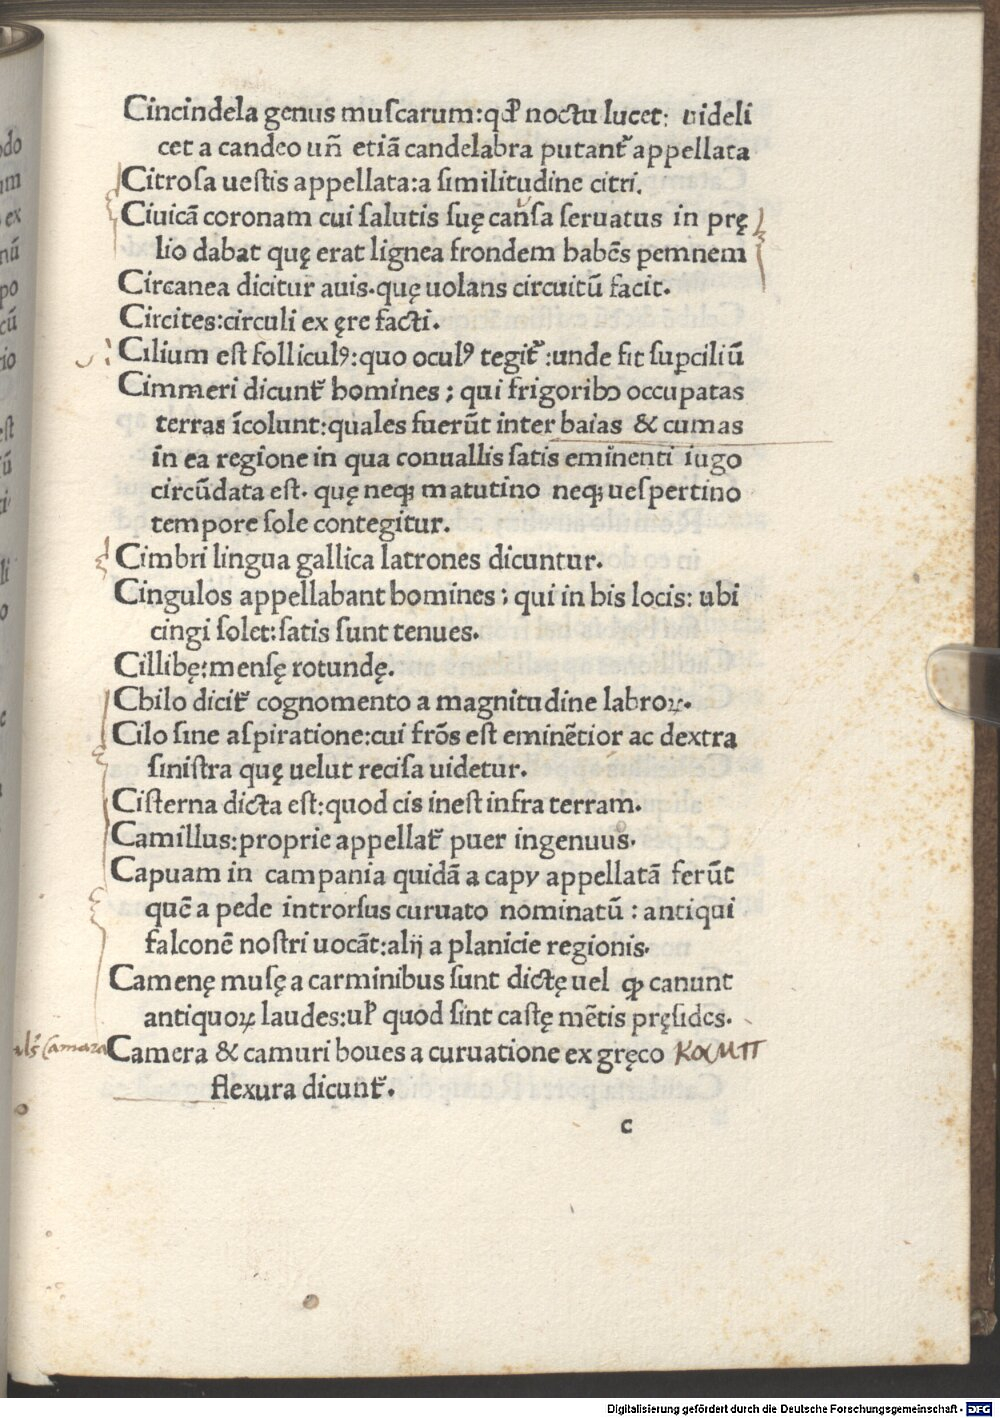 Cincindela genus muſcarum:qđ noctu lucet: uideli
cet a candeo uñ etiã candelabra putant᷑ appellata
Citroſa ueſtis appellata:a ſimilitudine citri.
Ciuicã coronam cui ſalutis ſuę cauſa ſeruatus in prę
lio dabat quę erat lignea frondem habēs ꝑemnem
Circanea dicitur auis.quę uolans circuitū facit.
Circites:circuli ex ęre facti.
Cilium eſt follicul᾿:quo ocul᾿ tegit᷑:unde fit ſuꝑciliū
Cimmeri dicunt᷑ homines ; qui frigoribꝰ occupatas
terras īcolunt:quales fuerūt inter baias & cumas
in ea regione in qua conuallis ſatis eminenti iugo
circūdata eſt. quę neqꝫ matutino neqꝫ ueſpertino
tempore ſole contegitur.
Cimbri lingua gallica latrones dicuntur.
Cingulos appellabant homines ; qui in his locis: ubi
cingi ſolet:ſatis ſunt tenues.
Cillibę:menſę rotundę.
Chilo dicit᷑ cognomento a magnitudine labroꝝ.
Cilo ſine aſpiratione:cui frōs eſt eminētior ac dextra
ſiniſtra quę uelut reciſa uidetur.
Ciſterna dicta eſt:quod cis ineſt infra terram.
Camillus:proprie appellat᷑ puer ingenuus.
Capuam in campania quidã a capy appellatã ferūt
quē a pede introrſus curuato nominatū : antiqui
falconē noſtri uocãt:alij a planicie regionis.
Camenę muſę a carminibus ſunt dictę uel ꝙ canunt
antiquoꝝ laudes:uꝉ quod ſint caſtę mētis pręſides.
Camera & camuri boues a curuatione ex gręco καμπ
flexura dicunt᷑.
c
Camara
Digitalisierung gefördert durch die Deutsche Forschungsgemeinschaft - DFG